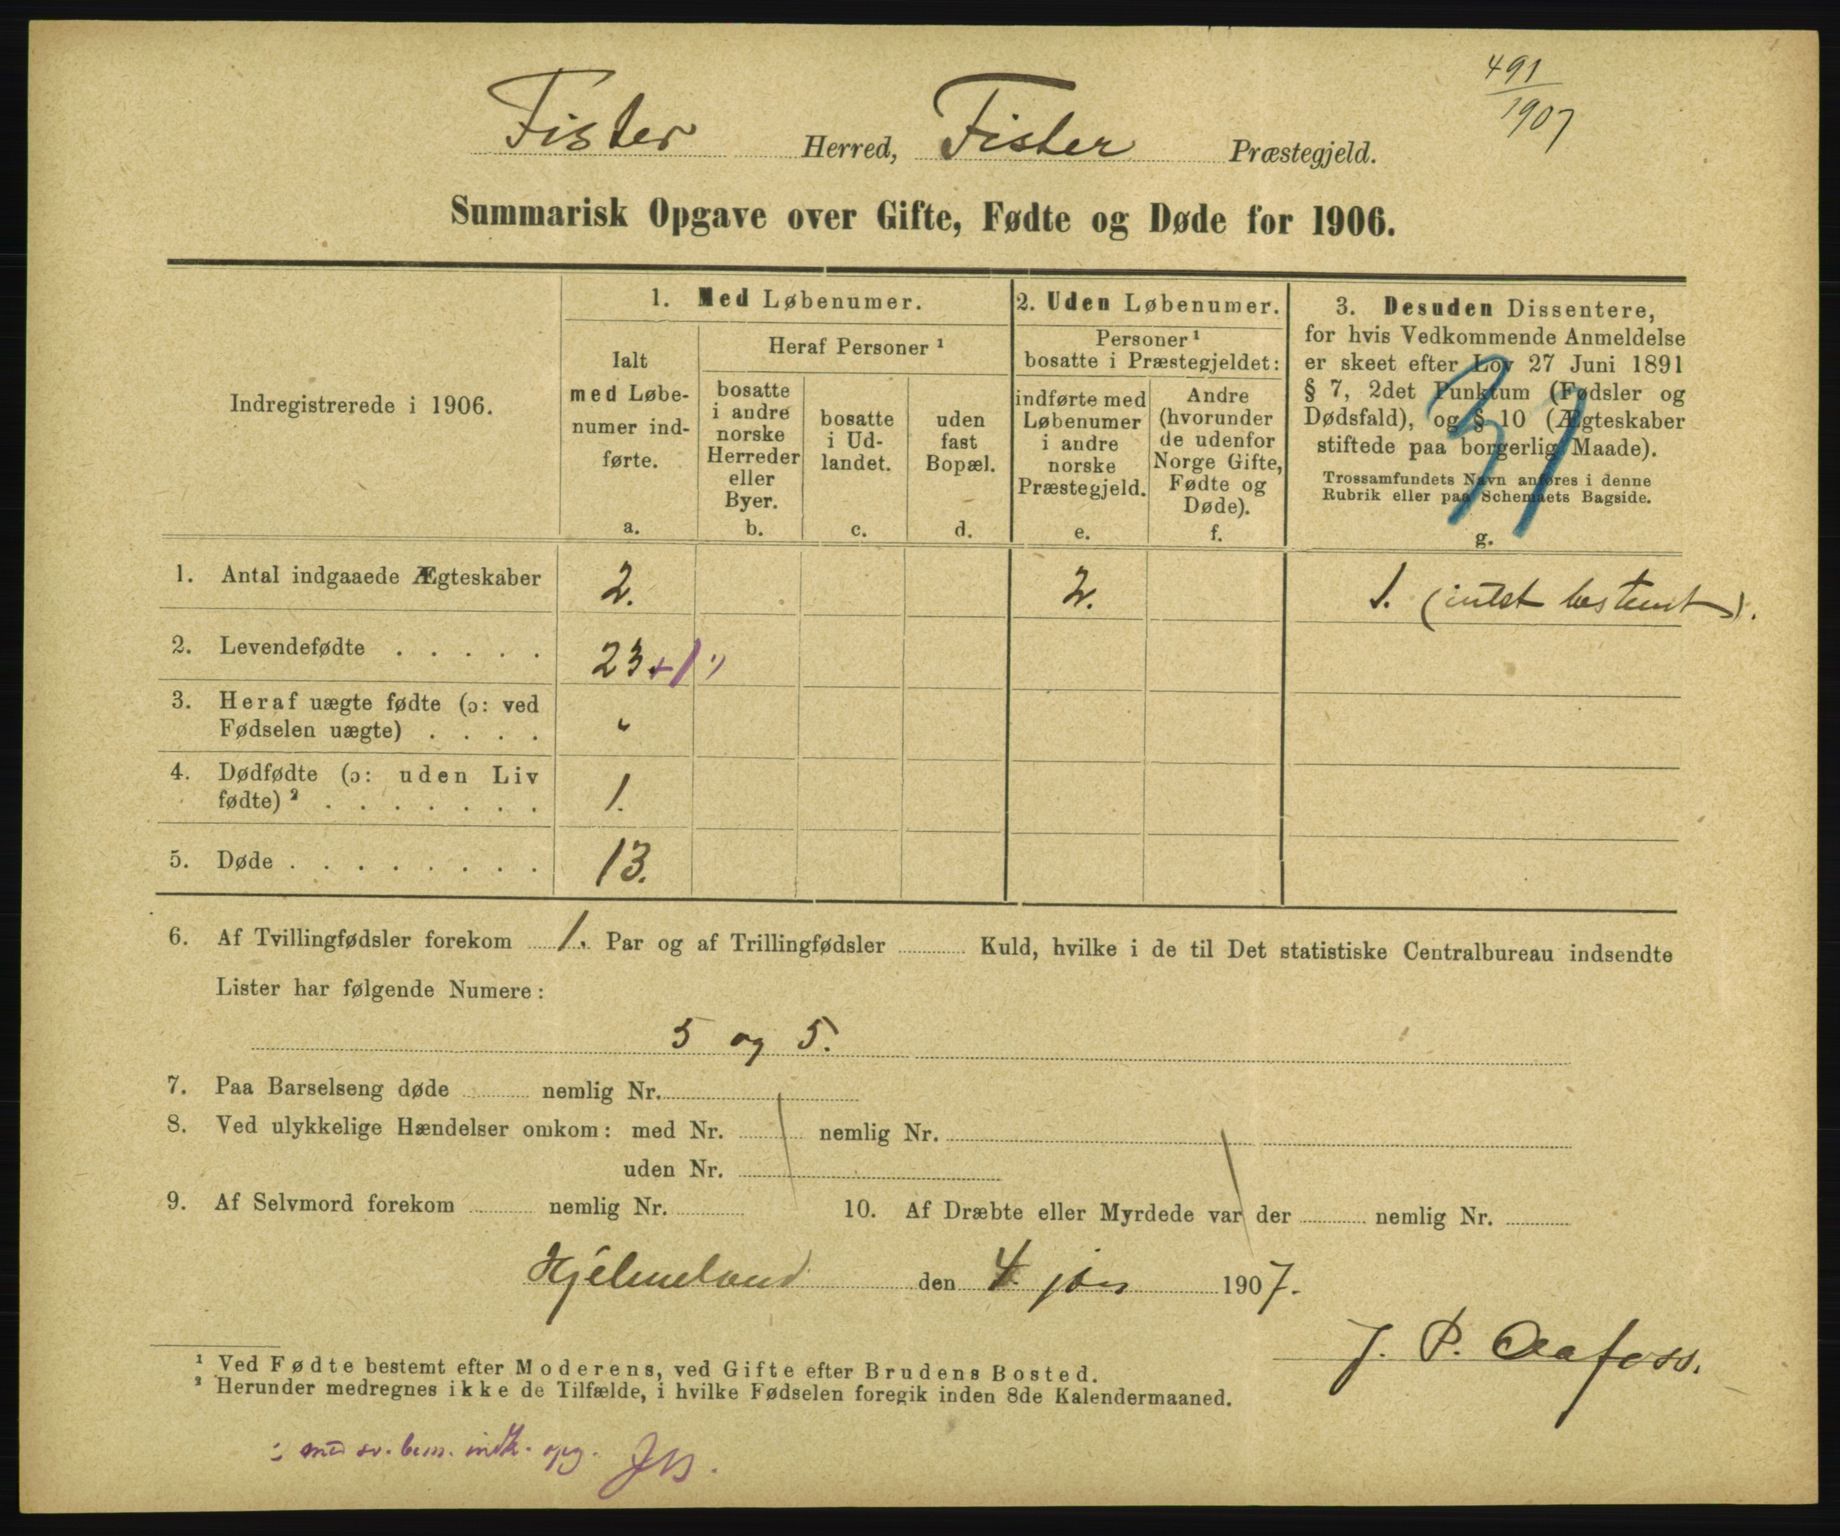 491
1907
Fister Herred, Fister Præstegjeld.
Summarisk Opgave over Gifte, Fødte og Døde for 1906.
Indregistrerede i 1906.
1. Med Løbenumer.
Ialt
med Løbe-
numer ind-
førte.
a.
Heraf Personer ¹
bosatte
i andre
norske
Herreder
eller
Byer.
b.
bosatte
i Ud-
landet.
c.
uden
fast
Bopæl.
d.
2. Uden Løbenumer.
Personer ¹
bosatte i Præstegjeldet:
indførte med
Løbenumer
i andre
norske
Præstegjeld.
e.
Andre
(hvorunder
de udenfor
Norge Gifte,
Fødte og
Døde).
f.
3. Desuden Dissentere,
for hvis Vedkommende Anmeldelse
er skeet efter Lov 27 Juni 1891
§ 7, 2det Punktum (Fødsler og
Dødsfald), og § 10 (Ægteskaber
stiftede paa borgerlig Maade).
Trossamfundets Navn anføres i denne
Rubrik eller paa Schemaets Bagside.
g.
1. Antal indgaaede Ægteskaber 2. 2. 1. (intet bestemt).
2. Levendefødte . . . . . 23 + 1
3. Heraf uægte fødte (ɔ: ved
Fødselen uægte) . . . . "
4. Dødfødte (ɔ: uden Liv
fødte) ² . . . . . . . 1.
5. Døde . . . . . . . . 13.
6. Af Tvillingfødsler forekom 1. Par og af Trillingfødsler Kuld, hvilke i de til Det statistiske Centralbureau indsendte
Lister har følgende Numere:
5 og 5.
7. Paa Barselseng døde nemlig Nr.
8. Ved ulykkelige Hændelser omkom: med Nr. nemlig Nr.
uden Nr.
9. Af Selvmord forekom nemlig Nr. 10. Af Dræbte eller Myrdede var der nemlig Nr.
Hjelmeland den 4. jan 1907.
J. P. Aafoss.
¹ Ved Fødte bestemt efter Moderens, ved Gifte efter Brudens Bosted.
² Herunder medregnes ikke de Tilfælde, i hvilke Fødselen foregik inden 8de Kalendermaaned.